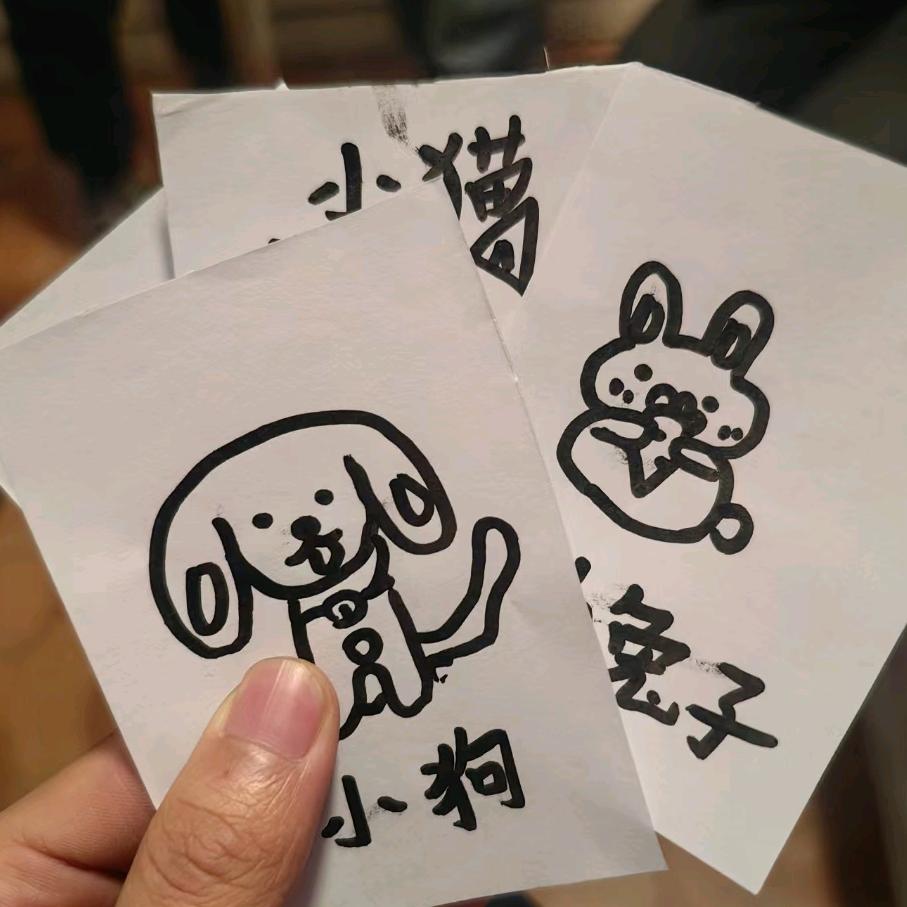 小猫
兔子
小狗